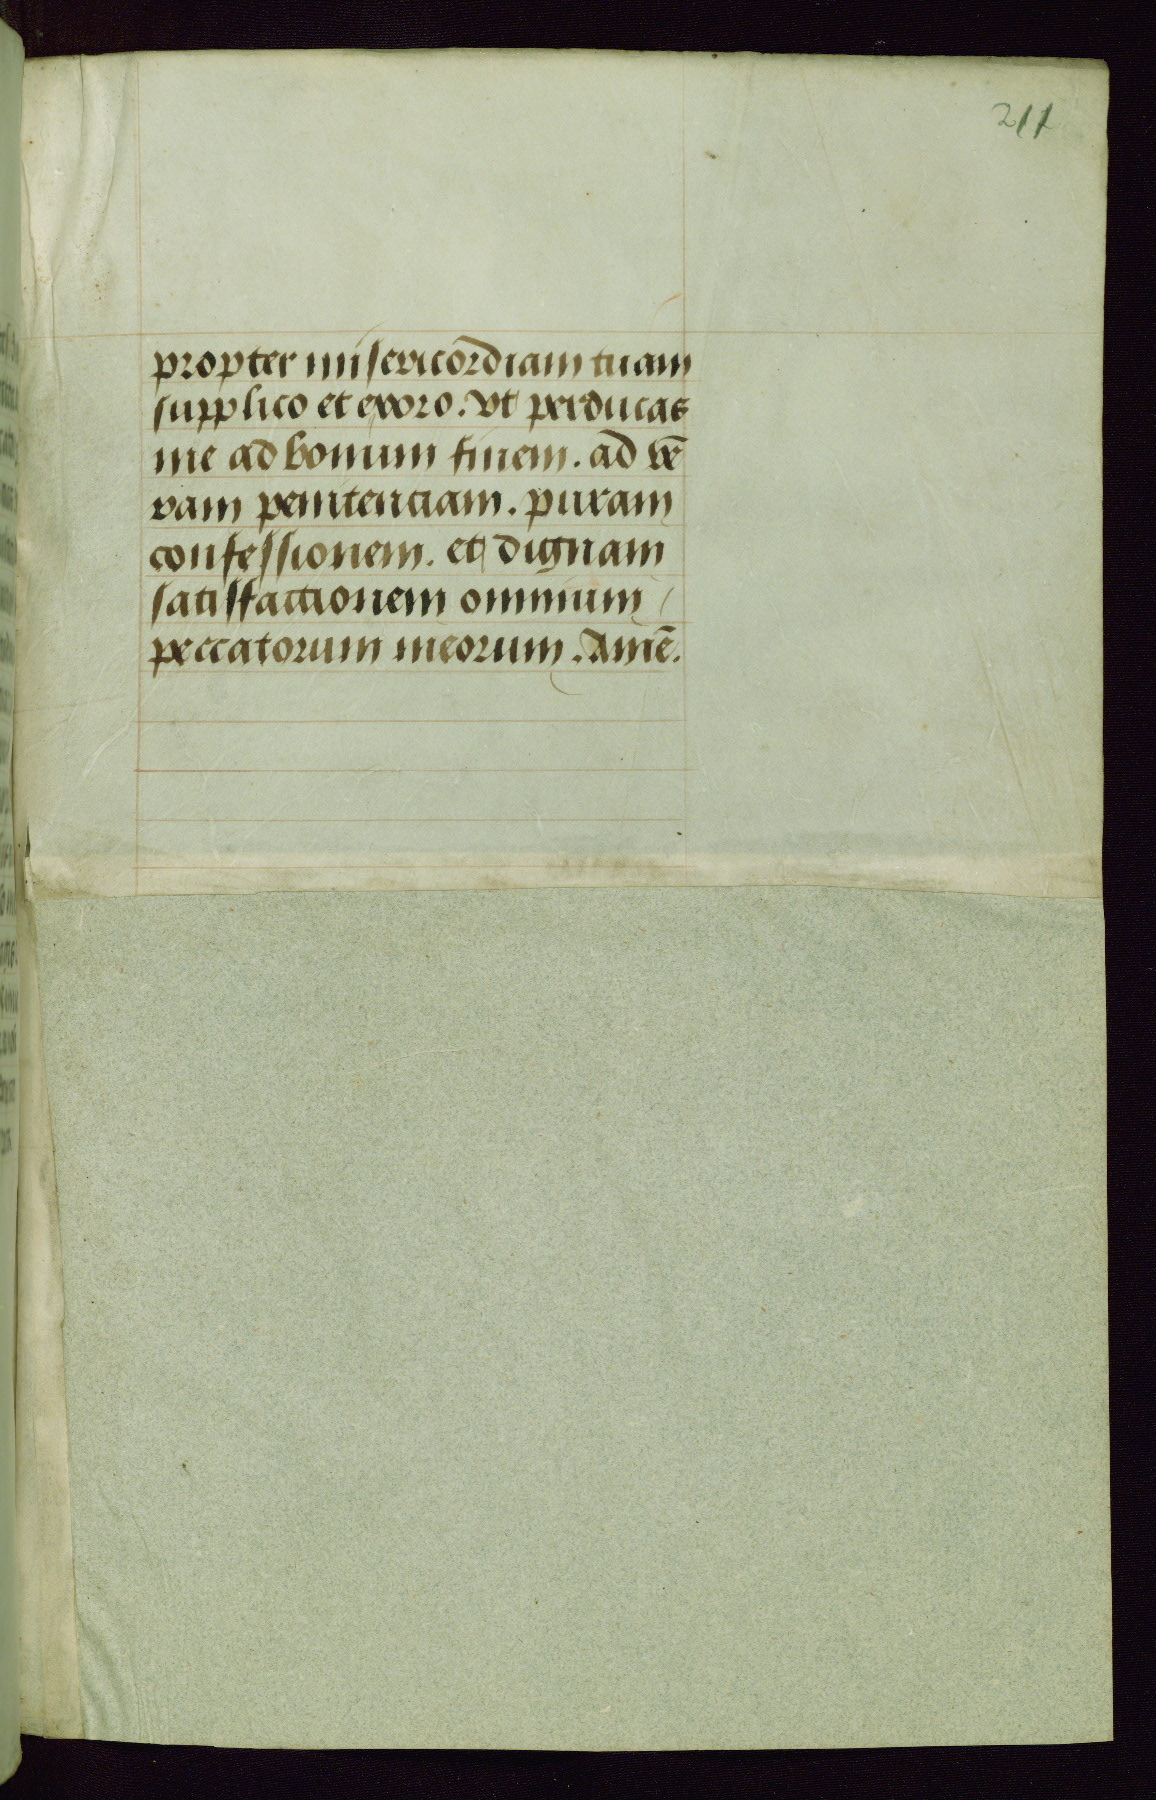 211
propter misericordiam tuam
supplico et exoro. Vt perducas
me ad bonum finem. ad vē
ram penitenciam. puram
confessionem. et dignam
satisfactionem omnium
peccatorum meorum. Amē.